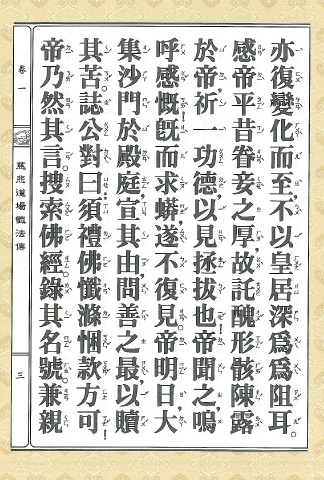 亦復變化而至。不以皇居深爲爲阻耳。
感帝平昔眷妾之厚，故託醜形骸陳露
於帝，祈一功德，以見拯拔也！帝聞之嗚
呼感慨！旣而求蟒遂不復見。帝明日，大
集沙門於殿庭，宣其由，問善之最，以贖
其苦。誌公對曰：須禮佛懺滌悃款方可！
帝乃然其言。搜索佛經，錄其名號。兼親
卷一
慈悲道場懺法傳
三